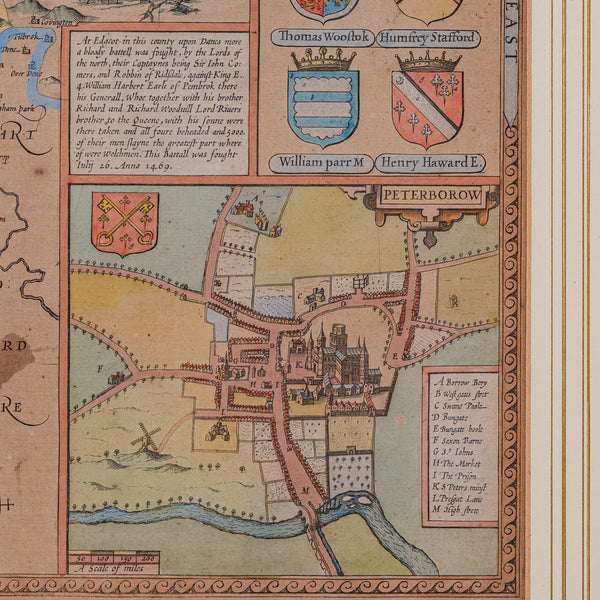 Covington
Tilbrok
Denc
Over Denc
ham park
ART
T
RD
RE
At Edgcot in this county upon Danes more
a bloody battell was fought, by the Lords of
the north, their Captaynes being Sir Iohn Co:
niers, and Robbin of Ridsdale, against King E.
4. William Harbert Earle of Pembrok there
his Generall, Whoe together with his brother
Richard and Richard Woodvill Lord Rivers
brother to the Queene, with his sonne were
there taken and all foure beheaded and 5000.
of their men slayne the greatest part where
of were Welchmen. This Battall was fought
Iuly 26. Anno 1469.
Thomas Woostok
Humfrey Stafford.
William parr M
Henry Haward E.
EAST
PETERBOROW
A Borrow Bery
B West gate stret
C Swane Poole
D Bungate
E Bungate hole
F Sexon Barne
G St Iohns
H The Market
I The Prison
K S Peters minst
L Prestgat Lane
M High strett
A
B
D
E
F
G
H
I
K
M
50 100 150 200
A Scale of miles